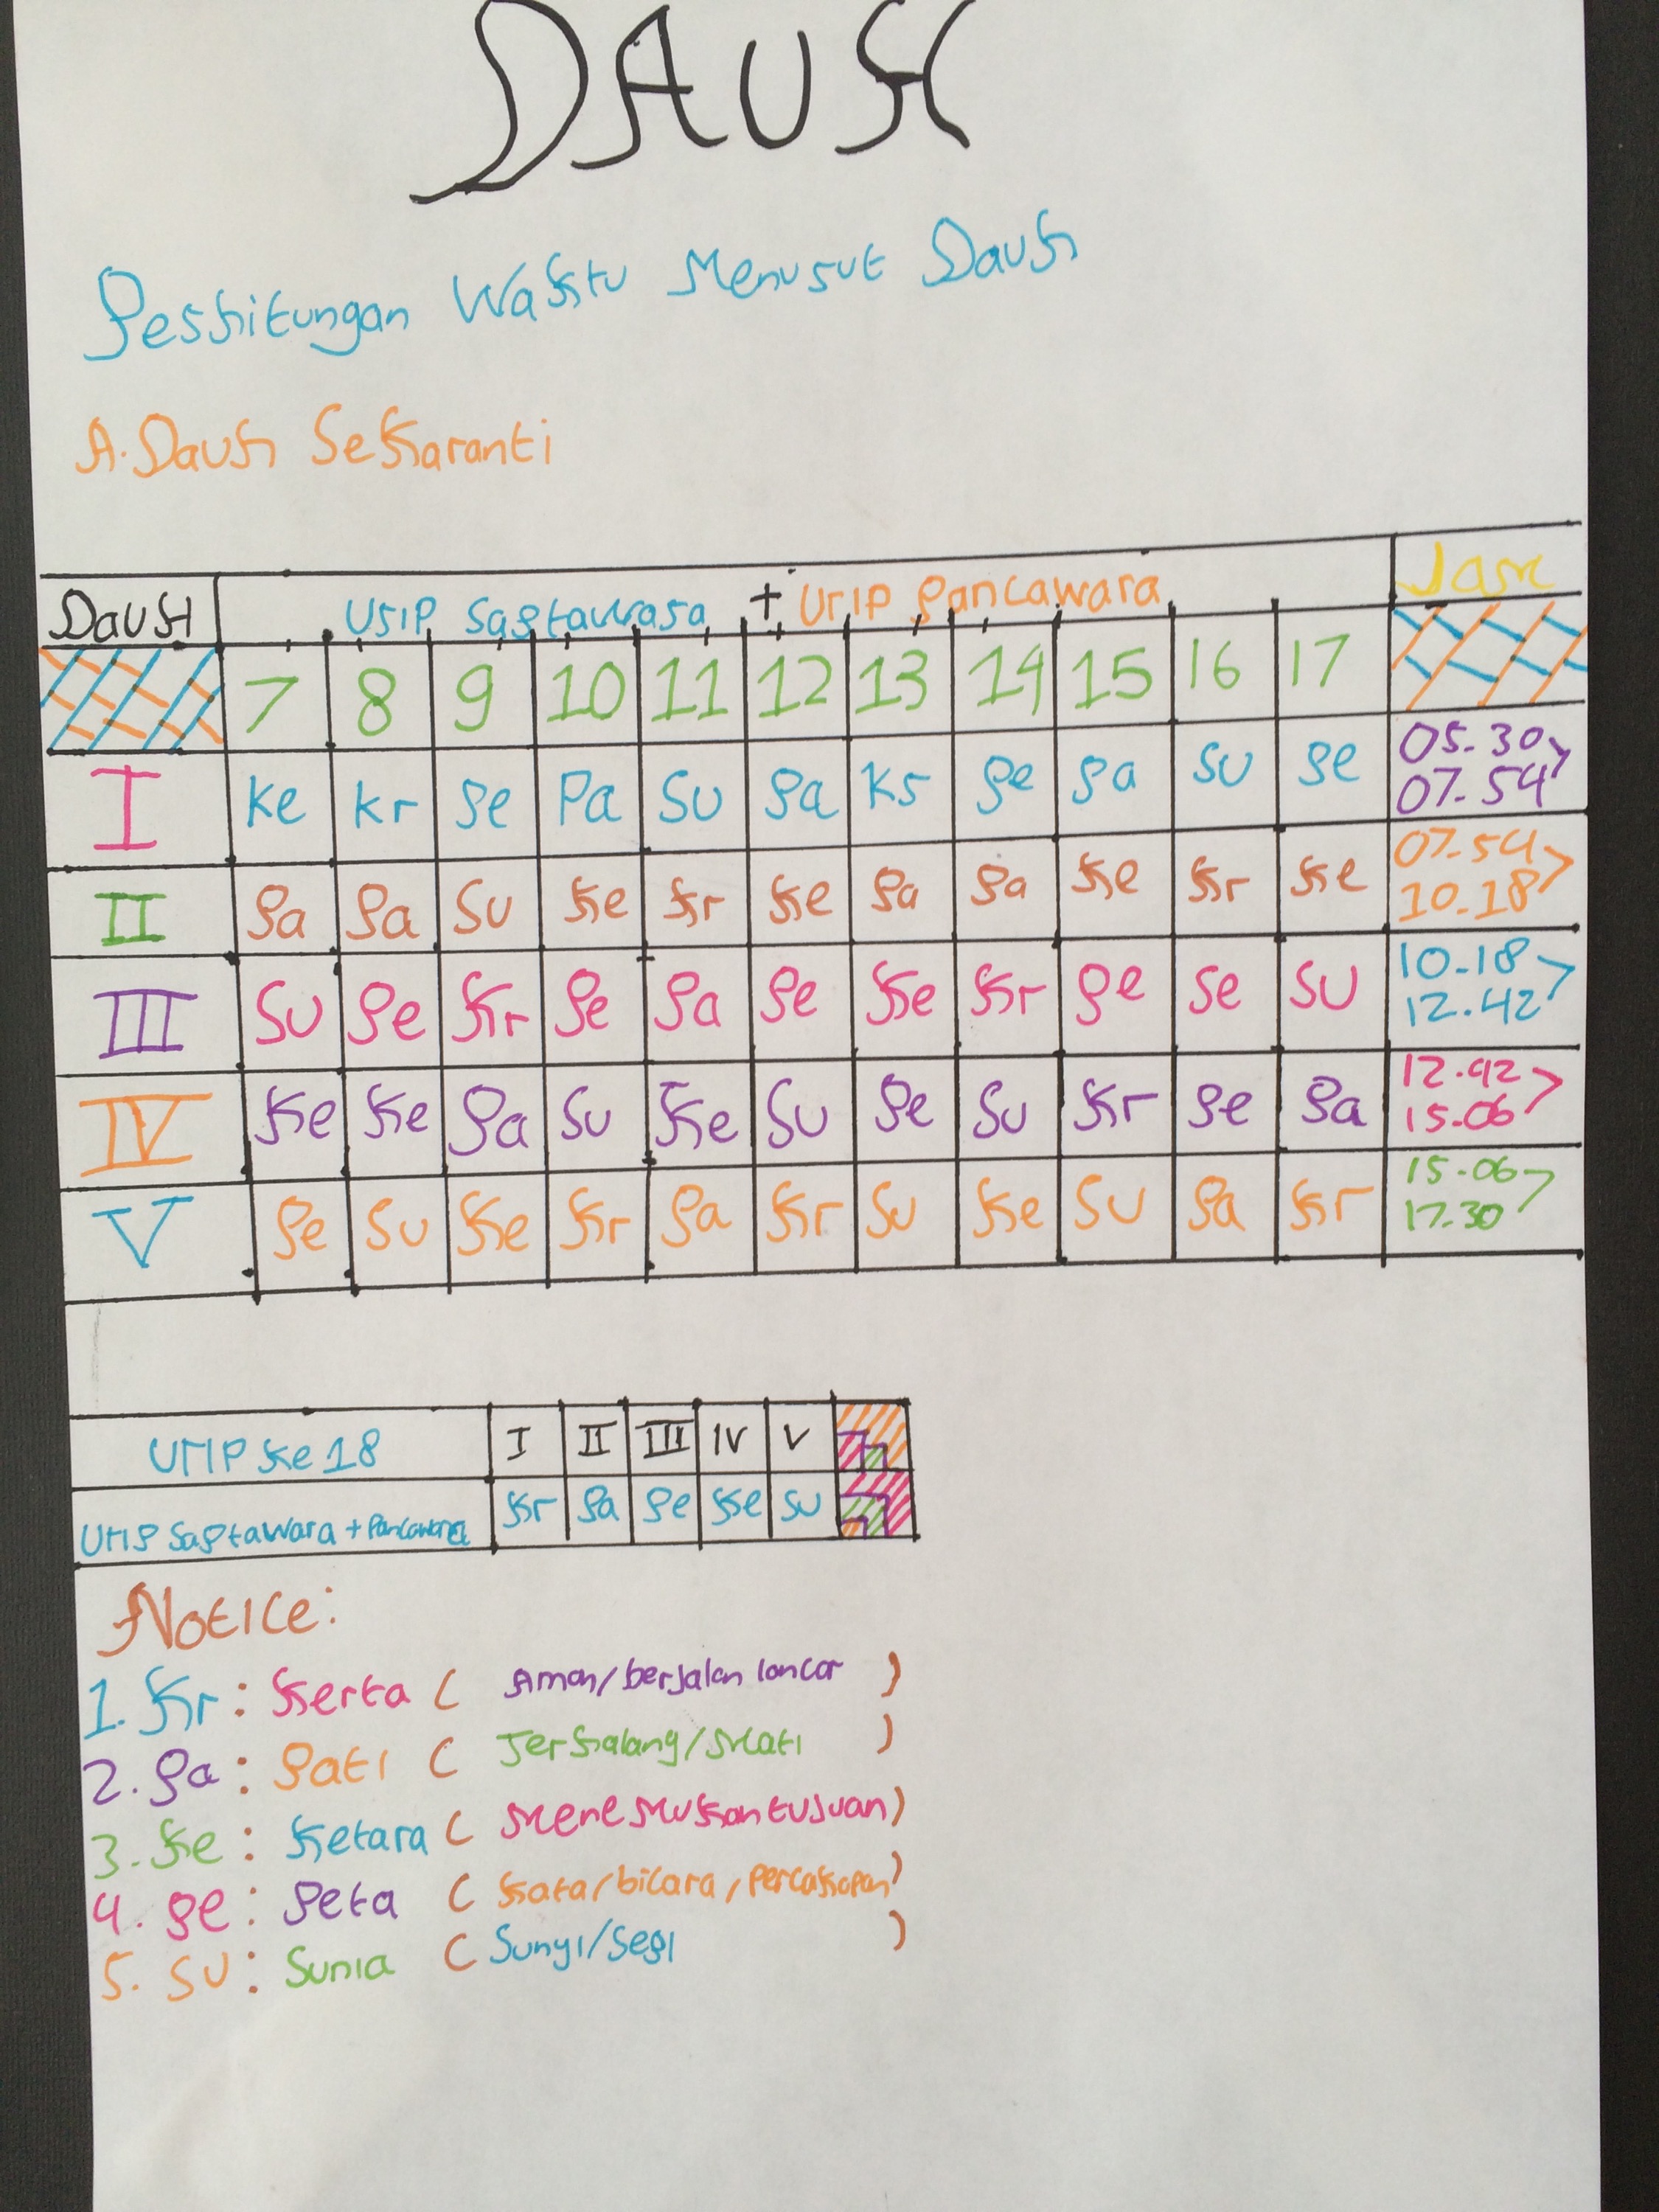 DAUH
Perhitungan Waktu Menurut Dauh
A. Dauh Sekaranti
DaUH Urip Saptawara + Urip Pancawara Jam
7 8 9 10 11 12 13 14 15 16 17
I Ke Kr Pe Pa Su Pa Kr Pe Pa Su Pe 05.30> 07.54
II Pa Pa Su Ke Kr Ke Pa Pa Ke Kr Ke 07.54> 10.18
III Su Pe Kr Pe Pa Pe Ke Kr Pe Se SU 10.18> 12.42
IV Ke Ke Pa Su Ke Su Pe Su Kr Pe Pa 12.42> 15.06
V Pe Su Ke Kr Pa Kr Su Ke Su Pa Kr 15.06> 17.30
Urip Ke 18 I II III IV V
Urip Saptawara + Pancawara Kr Pa Pe Ke Su
Notice:
1. Kr : Kerta ( Aman/berjalan lancar )
2. Pa : Pati ( Terhalang/Mati )
3. Ke : Ketara ( Menemukan tujuan )
4. Pe : Peta ( Kata/bicara, percakapan )
5. SU : Sunia ( Sunyi/Sepi )